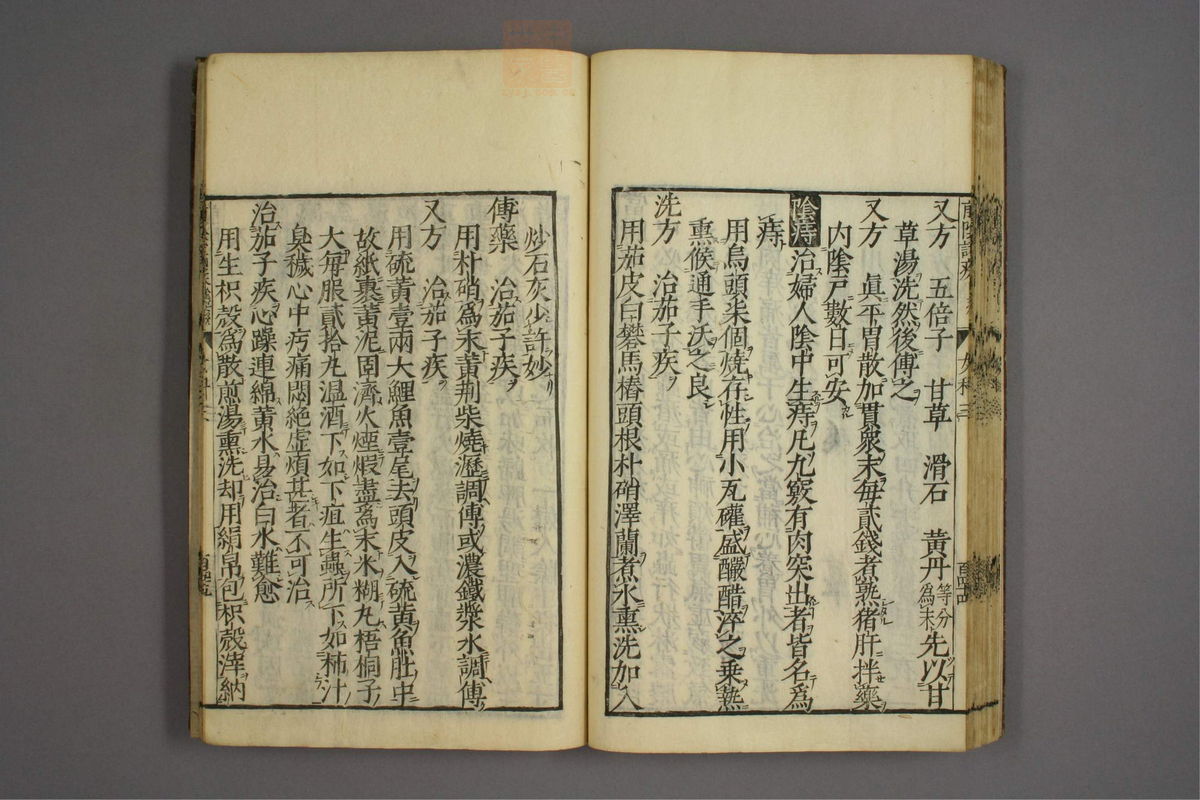 又方 五倍子 甘草 滑石 黃丹等分爲末先以甘
草湯洗然後傅之
又方 眞平胃散加貫衆末每貳錢煮熟猪肝拌藥
內陰戸數日可安
陰痔 治婦人陰中生痔凡九竅有肉突出者皆名爲
痔
用烏頭柒個燒存性用小瓦礶盛釅醋淬之乗熱
熏候通手沃之良
洗方 治茄子疾
用茄皮白礬馬椿頭根朴硝澤蘭煮水熏洗加入
炒石灰少許妙
傅藥 治茄子疾
用朴硝爲末黃荆柴燒瀝調傅或濃鐵漿水調傅
又方 治茄子疾
用硫黃壹兩大鯉魚壹尾去頭皮入硫黃魚肚中
故紙裹黃泥固濟火煙煆盡爲末米糊丸梧桐子
大每服貳拾丸温酒下如下疽生蟲所下如柿汁
臭穢心中㽲痛悶絶虚煩甚者不可治
治茄子疾心躁連綿黃水易治白水難愈
用生枳殼爲散煎湯熏洗却用絹帛包枳殼滓納